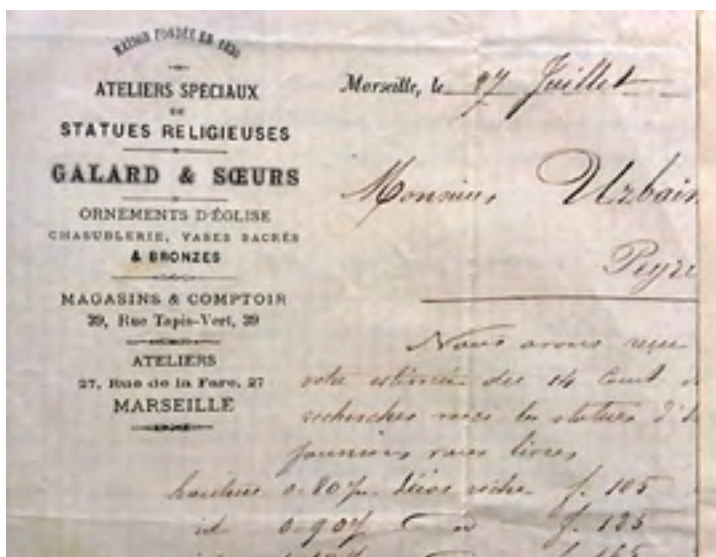 MAISON FONDÉE EN 1830
ATELIERS SPÉCIAUX
DE
STATUES RELIGIEUSES
GALARD & SŒURS
ORNEMENTS D'ÉGLISE
CHASUBLERIE, VASES SACRÉS
& BRONZES
MAGASINS & COMPTOIR
39, Rue Tapis-Vert, 39
ATELIERS
27, Rue de la Fare, 27
MARSEILLE
Marseille, le 27 Juillet
Monsieur Urbain
Peyre
Nous avons reçu
votre estimée des 14 Court
recherches voici les statues
vous livrer
hauteur 0.80 riche f. 105
id 0.90 f. 125